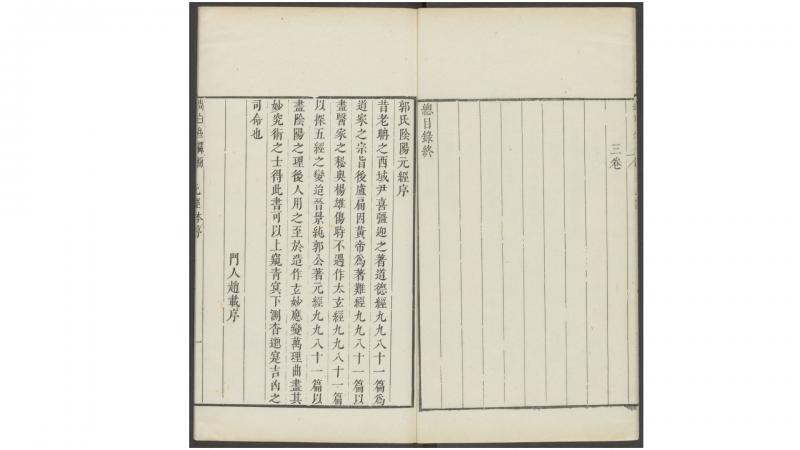 三卷
總目錄終
郭氏陰陽元經序
昔老聃之西域尹喜彊迎之著道德經九九八十一篇爲
道家之宗旨後盧扁因黃帝爲著難經九九八十一篇以
盡醫家之秘奥楊雄傷時不遇作太玄經九九八十一篇
以探五經之變迨晉景純郭公著元經九九八十一篇以
盡陰陽之理後人用之至於造作玄妙應變萬理曲盡其
妙究術之士得此書可以上窺青冥下測杳邈寔吉凶之
司命也
門人趙載序
元經本序
一